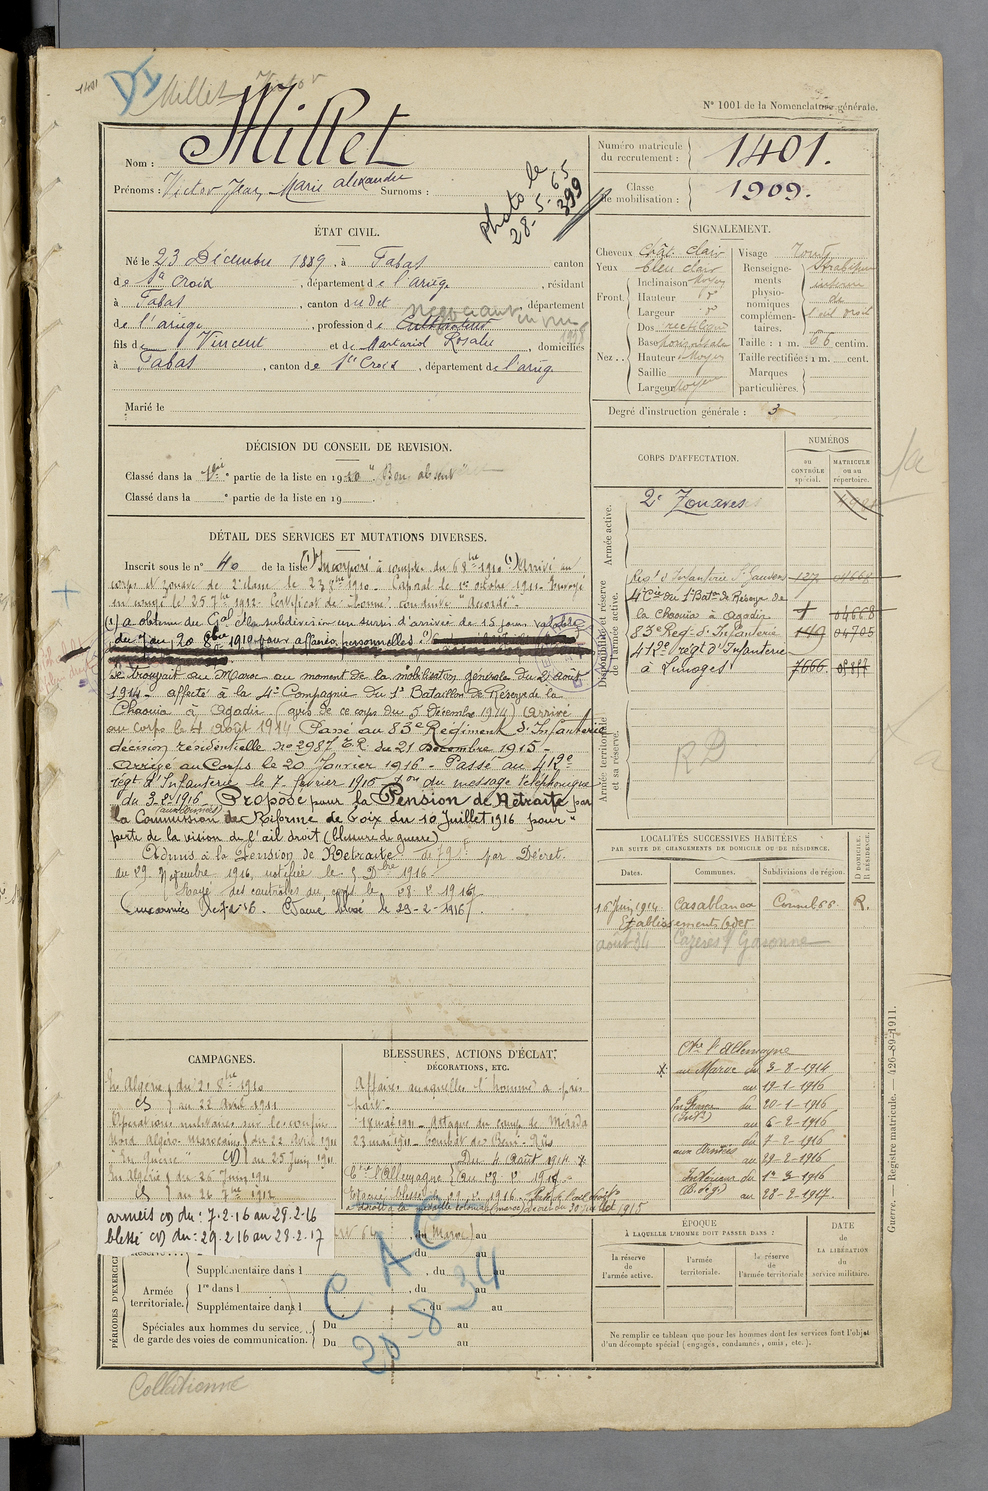 1401
Millet Victor
N° 1001 de la Nomenclature générale.
Nom : Millet
Prénoms : Victor Jean Marie Alexandre Surnoms :
photo le
28.5.65
399
Numéro matricule
du recrutement : 1401.
Classe
de mobilisation : 1909.
ÉTAT CIVIL.
Né le 23 Décembre 1889, à Fabas canton
de Ste Croix, département de l'ariège, résidant
à Fabas, canton du dit, département
de l'ariège, profession de Cultivateur négociant en vin
1938
fils de Vincent et de Rosalie, domiciliés
à Fabas, canton de Ste Croix, département de l'ariège
Marié le
SIGNALEMENT.
Cheveux Chât. clair
Yeux bleu clair
Front. Inclinaison Moyen
Hauteur
Largeur
Nez. Dos rectiligne
Base horizontale
Hauteur Moyen
Saillie
Largeur Moyenne
Visage rond
Renseignements physionomiques complémentaires.
de
l'œil droit
Taille : 1 m. 66 centim.
Taille rectifiée : 1 m. cent.
Marques
particulières.
Degré d'instruction générale : 3
DÉCISION DU CONSEIL DE REVISION.
Classé dans la 1ère partie de la liste en 1910 "Bon absent"
Classé dans la ° partie de la liste en 19
CORPS D'AFFECTATION.
NUMÉROS
au
CONTRÔLE
spécial.
MATRICULE
ou au
répertoire.
Armée active.
2e Zouaves
Disponibilité et réserve
de l'armée active.
Regt d'Infanterie St Gaudens 127 04668
4e Cie du 1er Batn de Réserve de
la Chaouia à Agadir 04668
83e Reg. d'Infanterie 04705
412e régt d'Infanterie
à Limoges 7666
Armée territoriale
et sa réserve.
RD
DÉTAIL DES SERVICES ET MUTATIONS DIVERSES.
Inscrit sous le n° 40 de la liste (1) Incorporé à compter du 6 8bre 1910 (1) Arrivé au
corps et zouave de 2e classe le 23 8bre 1910. Caporal le 1er octobre 1911. Envoyé
en congé le 25 7bre 1912. Certificat de "bonne" conduite "Accordé".
(1) a obtenu du Gal Ct la subdivision un sursis d'arrivée de 15 jours valable
du 7 au 20 8bre 1910 pour affaires personnelles
Se trouvait au Maroc au moment de la mobilisation générale du 2 août
1914 affecté à la 4e Compagnie du 1er Bataillon de Réserve de la
Chaouia à Agadir (avis de ce corps du 5 Décembre 1914) Arrivé
au corps le 4 août 1914 Passé au 83e Régiment d'Infanterie
décision résidentielle no 2987 du 21 Décembre 1915 -
Arrivé au Corps le 20 Janvier 1916 - Passé au 412e
régt d'Infanterie le 7 février 1916 du message téléphonique
du 3.2.1916 (aux armées) Proposé pour la Pension de Retraite par
la Commission de Réforme de Foix du 10 Juillet 1916 pour "
perte de la vision de l'œil droit (blessure de guerre)
Admis à la Pension de Retraite par Décret
du 29 9bre 1916, notifiée le 1916.
Rayé des contrôles du corps le 1916
Aux armées le 7-2-16. Evacué blessé le 29-2-1916.
LOCALITÉS SUCCESSIVES HABITÉES
PAR SUITE DE CHANGEMENTS DE DOMICILE OU DE RÉSIDENCE.
Dates.
Communes.
Subdivisions de région.
D DOMICILE.
R RÉSIDENCE.
15 Juin 1914 Casablanca Consul R.
Etablissements
août 34 Cazères s/ Garonne
Ctre l'Allemagne
X au Maroc du 3-8-1914
au 19-1-1916
En France du 20-1-1916
au 6-2-1916
aux Armées du 7-2-1916
au 29-2-1916
Intérieur du 1er 3-1916
au 28-2-1917.
CAMPAGNES.
En Algérie du 20 8bre 1910
CS au 22 Avril 1911
Opérations militaires sur les confins
Nord Algéro-marocains du 22 Avril 1911
"En guerre" au 25 Juin 1911
En Algérie du 26 Juin 1911
CS au 26 7bre 1912
armées du : 7.2.16 au 29.2.16
blessé du : 29.2.16 au 28.2.17
BLESSURES, ACTIONS D'ÉCLAT,
DÉCORATIONS, ETC.
Affaires auxquelles l'homme a pris
part.
18 mai 1911 - Attaque du camp de Mérada
23 mai 1911 - Combat de
Du 4 Août 1914
Ctre l'Allemagne
Evacué blessé le 29.2.1916
a droit à la médaille coloniale (maroc) décret du 30 juillet 1915
(Maroc) au
Supplémentaire dans l , du au
Armée
territoriale.
1re dans l , du au
Supplémentaire dans l , du au
Spéciales aux hommes du service
de garde des voies de communication.
Du au
Du au
PÉRIODES D'EXERCICES
C A C
20-8-34
ÉPOQUE
À LAQUELLE L'HOMME DOIT PASSER DANS :
la réserve
de
l'armée active.
l'armée
territoriale.
la réserve
de
l'armée territoriale
DATE
de
LA LIBÉRATION
du
service militaire.
Ne remplir ce tableau que pour les hommes dont les services font l'objet
d'un décompte spécial (engagés, condamnés, omis, etc.).
Guerre. — Registre matricule. — 426-89-1911.
Collationné